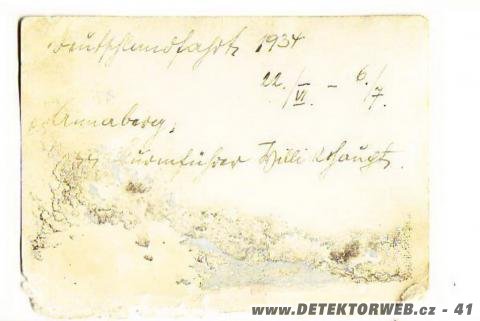 Deutschlandfahrt 1934
22./VI. - 6./7.
Annaberg,
Sturmführer Willi
www.DETEKTORWEB.cz - 41